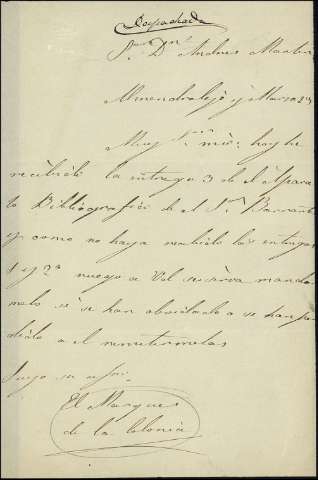 Despachada
Sr. Dn. Andres Martin
Almendralejo y Marzo 27
Muy Sr. mio: hoy he
recibido la entrega 3 de el Apara
to Bibliografico de el Sr. Barrantes
y como no haya recibido las entregas
1 y 2ª ruego a Vd se sirva manda
melo si se han obviado o se han pe
dido a el remitermelas
Suyo su afmo.
El Marques
de la Colonia